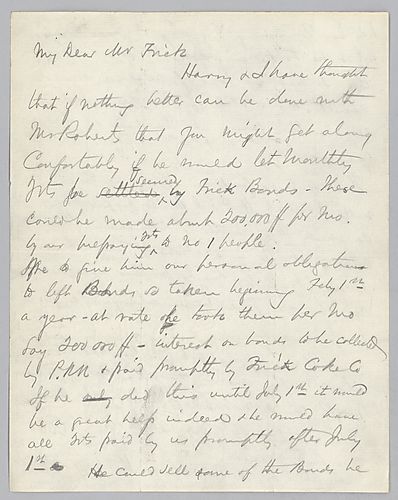 My Dear Mr Frick
Harry & I have thought
that if nothing better can be done with
Mr Roberts that you might get along
Comfortably if he would let Monthly
Pyts be settled secured by Frick Bonds - These
could be made about 200,000 $ per Mo.
by our prepaying Pyts to No 1 people.
to give him our personal obligations
to left Bonds so taken begining July 1st
a year - at rate he took them per Mo
Say 200 000 $ - interest on bonds to be collected
by P.RR & paid promptly by Frick Coke Co
If he only did this until July 1st it would
be a great help indeed & he would have
all Pyts paid by us promptly after July
1st
He could sell some of the Bonds he